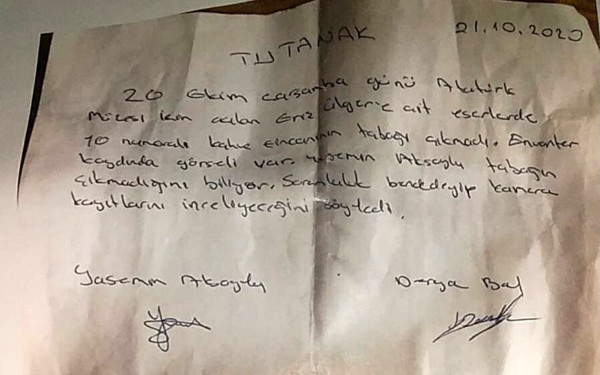 21.10.2020
TUTANAK
20 Ekim çarşamba günü Atatürk
Müzesi için açılan Eriz Ülger'e ait eserlerde
10 numaralı kahve fincanının tabağı çıkmadı. Envanter
kaydında görseli var. Yasemin Aksoylu tabağın
çıkmadığını biliyor. Sorumluluk bendedeyip kamera
kayıtlarını inceliyeceğini söyledi.
Yasemin Aksoylu Derya Bal